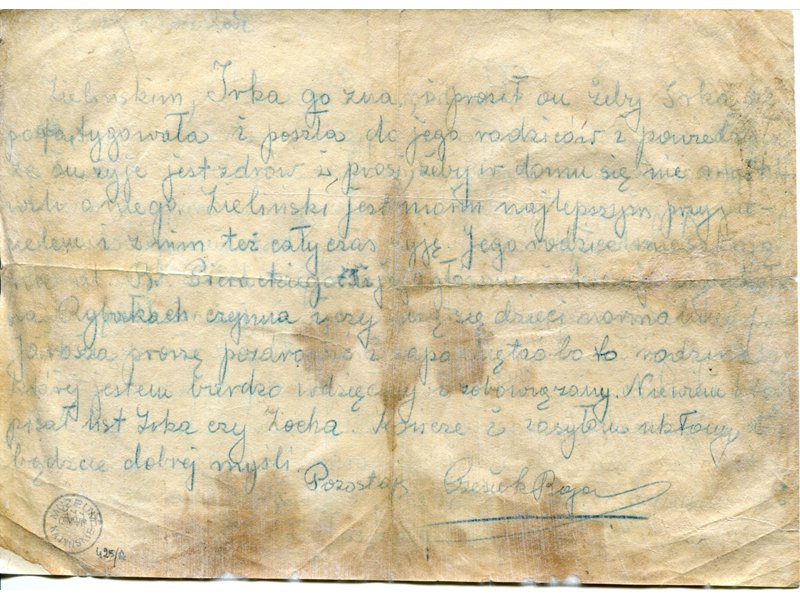 Zielinskim, Irka go zna, i prosił on żeby Irka się
pofatygowała i poszła do jego rodziców i powiedziała
że on żyje jest zdrów i prosi żeby w domu się nie
o niego. Zielinski jest moim najlepszym przyja-
cielem i z nim też cały czas żyję. Jego rodzice mieszkają
na ul. Br. Pierackiego
na Rybakach czynna i czy uczą się dzieci normalnie
Jarosza proszę pozdrowić i bo to rodzina
której jestem bardzo wdzięczny i zobowiązany. Niewiem
pisał list Irka czy Zocha. Kończę i zasyłam ukłony
bądźcie dobrej myśli.
Pozostaję Czesiek Raja
425/A